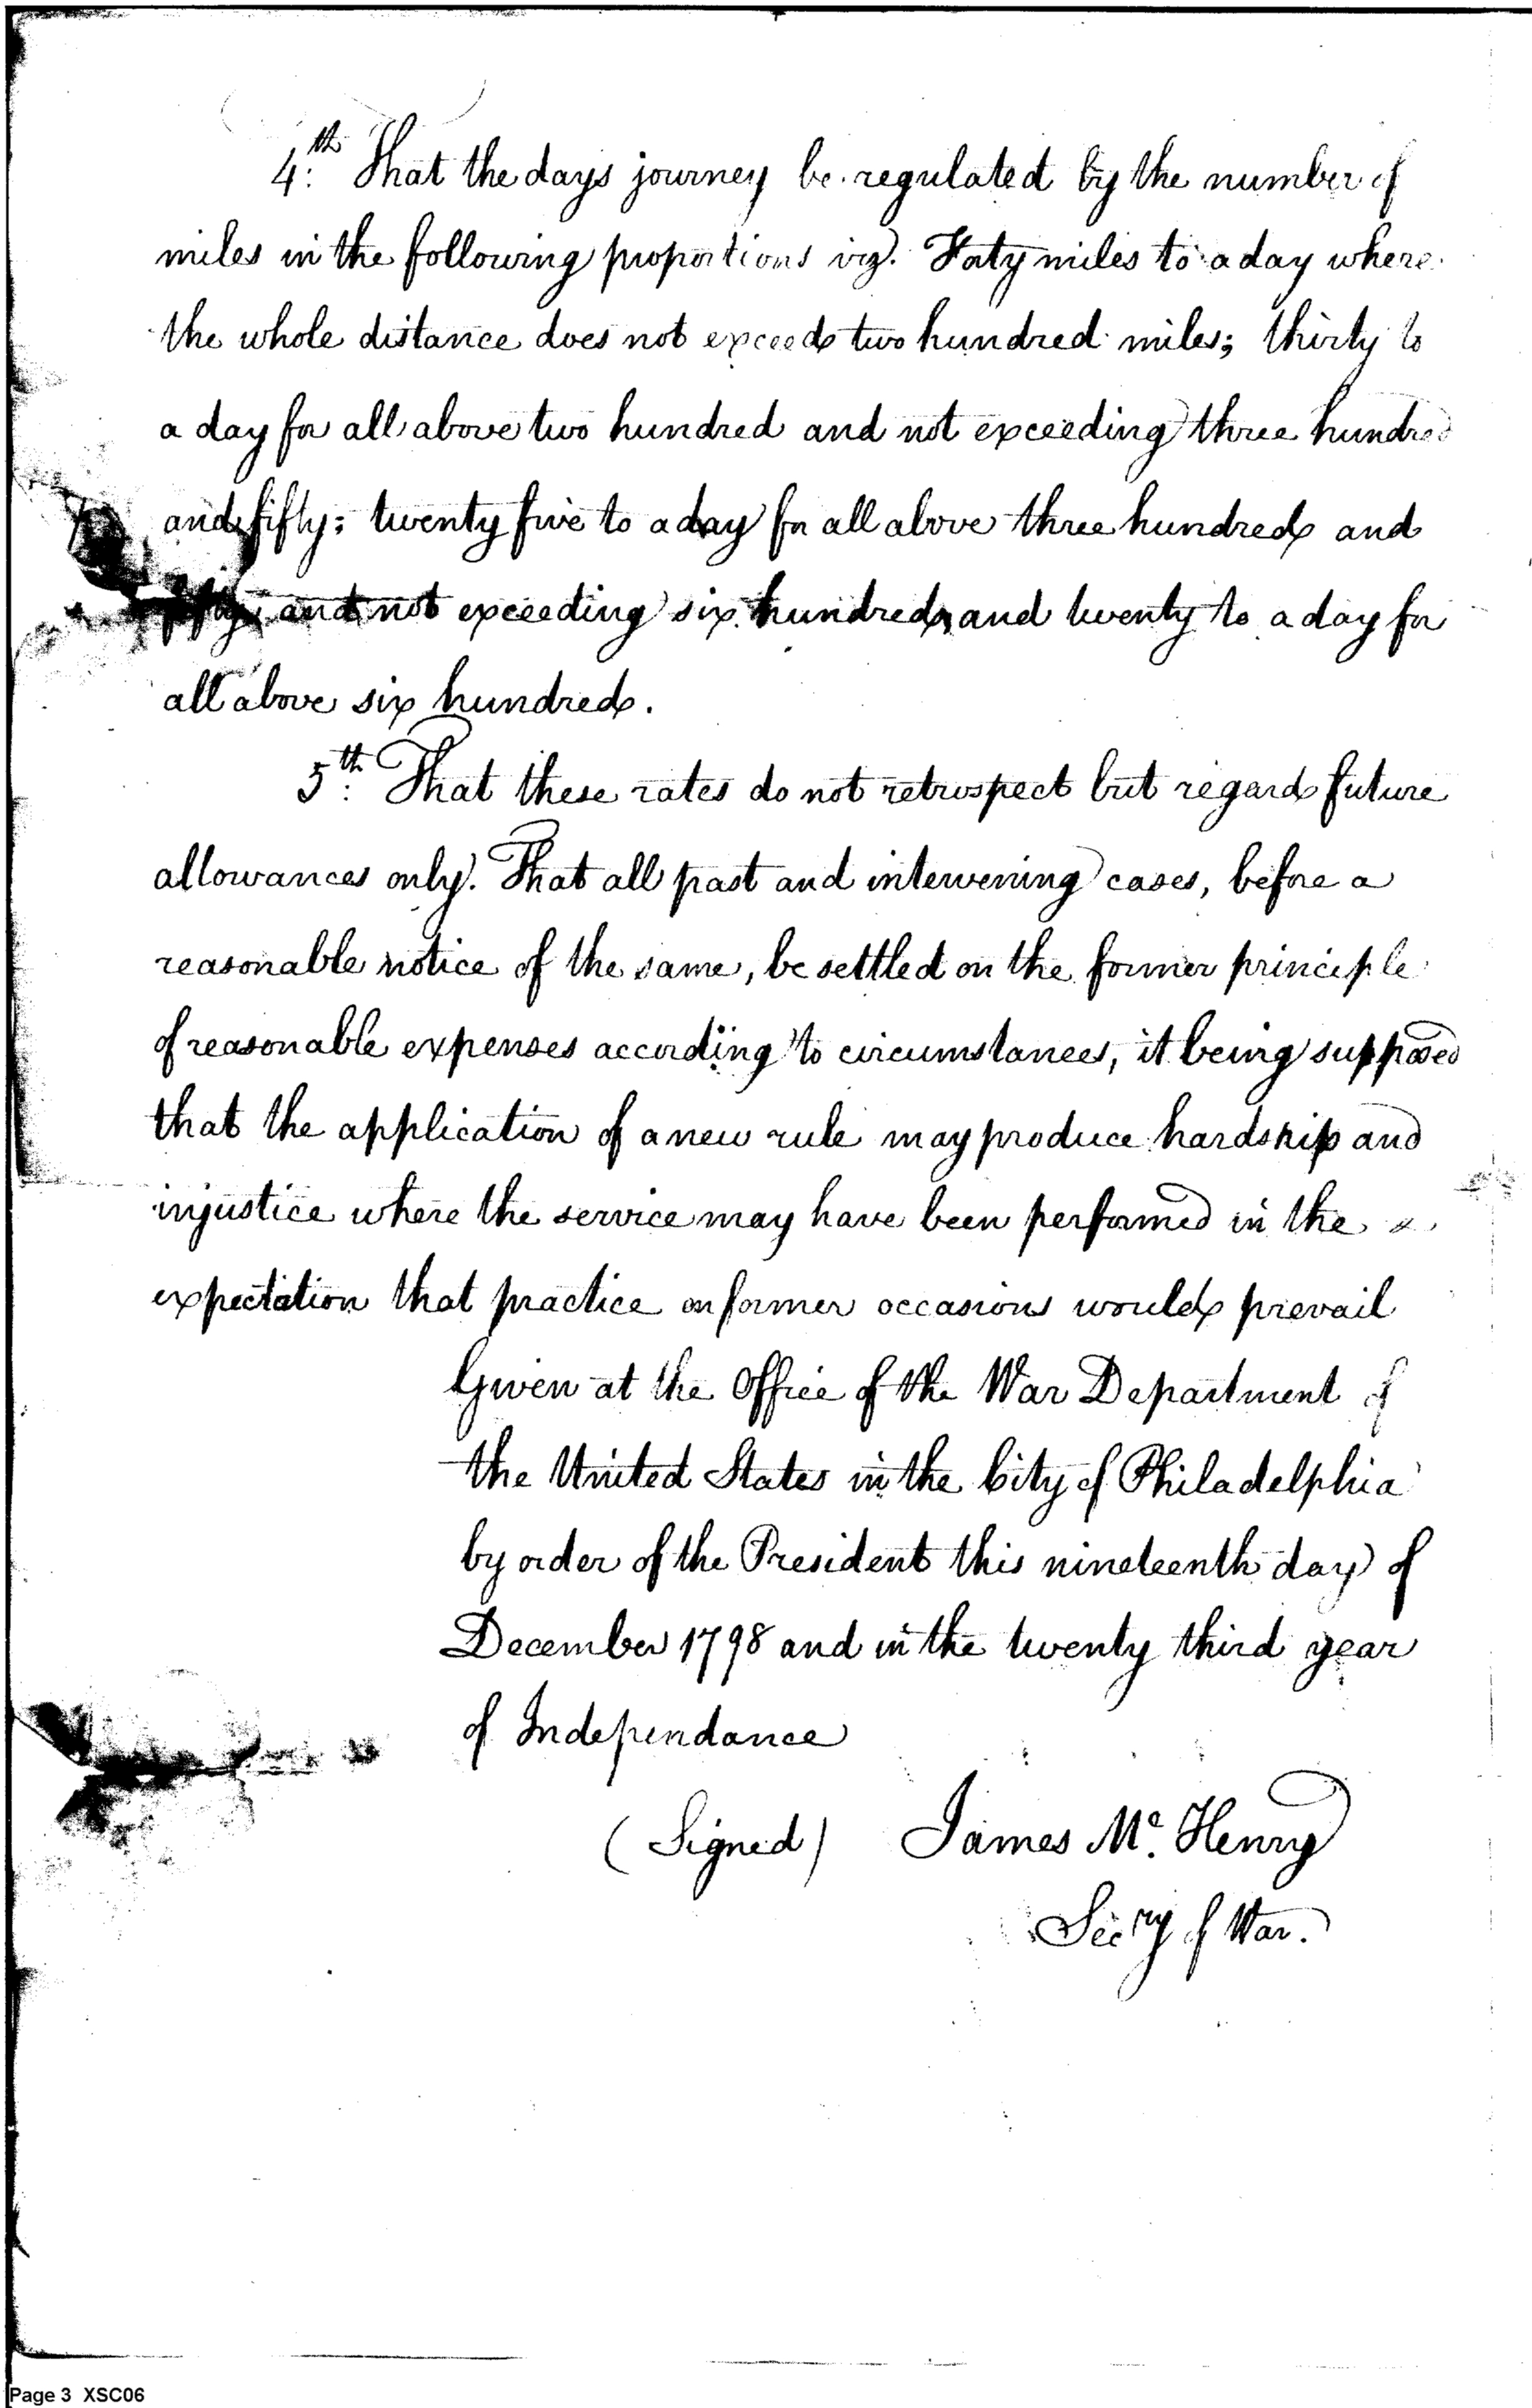 4th. That the days journey be regulated by the number of
miles in the following proportions viz. Forty miles to a day where
the whole distance does not exceed two hundred miles; thirty to
a day for all above two hundred and not exceeding three hundred
and fifty; twenty five to a day for all above three hundred and
fifty, and not exceeding six hundred, and twenty to a day for
all above six hundred.
5th. That these rates do not retrospect but regard future
allowances only. That all past and intervening cases, before a
reasonable notice of the same, be settled on the former principle
of reasonable expenses according to circumstances, it being supposed
that the application of a new rule may produce hardship and
injustice where the service may have been performed in the
expectation that practice on former occasions would prevail
Given at the Office of the War Department of
the United States in the City of Philadelphia
by order of the President this nineteenth day of
December 1798 and in the twenty third year
of Independance
(Signed) James Mc. Henry
Secry of War.
Page 3 XSC06